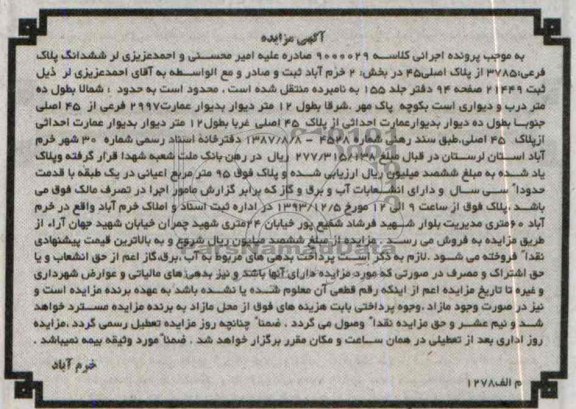 آگهی مزایده
به موجب پرونده اجرائی کلاسه ۹۰۰۰۰۲۹ صادره علیه امیر محسنی و احمدعزیزی لر ششدانگ پلاک
فرعی؛۳۷۸۵ از پلاک اصلی۴۵ در بخش: ۲ خرم آباد ثبت و صادر و مع الواسطه به آقای احمدعزیزی لر ذیل
ثبت ۲۱۴۴۹ صفحه ۹۴ دفتر جلد ۱۵۵ به نامبرده منتقل شده است . محدود است به حدود ؛ شمالا بطول ده
متر درب و دیواری است بکوچه پاک مهر .شرقا بطول ۱۲ متر دیوار بدیوار عمارت۲۹۹۷ فرعی از ۴۵ اصلی
جنوبا بطول ده دیوار بدیوارعمارت احداثی از پلاک ۴۵ اصلی غربا بطول۱۲ متر دیوار بدیوار عمارت احداثی
ازپلاک ۴۵ اصلی.طبق سند رهنی شماره ۴۵۲۸ – ۱۳۸۷/۸/۸ دفترخانه اسناد رسمی شماره ۳۰ شهر خرم
آباد استان لرستان در قبال مبلغ ۲۷۷/۳۱۵/۱۳۸ ریال در رهن بانک ملت شعبه شهدا قرار گرفته وپلاک
یاد شده به مبلغ ششصد میلیون ریال ارزیابی شده و پلاک فوق ۹۵ متر مربع اعیانی در یک طبقه با قدمت
حدوداً سی سال و دارای انشعابات آب و برق و گاز که برابر گزارش مامور اجرا در تصرف مالک فوق می
باشد .پلاک فوق از ساعت ۹ الی ۱۲ مورخ ۱۳۹۳/۱۲/۵ در اداره ثبت اسناد و املاک خرم آباد واقع در خرم
آباد ۶۰متری مدیریت بلوار شهید فرشاد شفیع پور خیابان ۲۴متری شهید چمران خیابان شهید جهان آراء از
طریق مزایده به فروش می رسد . مزایده از مبلغ ششصد میلیون ریال شروع و به بالاترین قیمت پیشنهادی
نقداً فروخته می شود .لازم به ذکر است پرداخت بدهی های مربوط به آب .برق.گاز اعم از حق انشعاب و یا
حق اشتراک و مصرف در صورتی که مورد مزایده دارای آنها باشد و نیز بدهی های مالیاتی و عوارض شهرداری
و غیره تا تاریخ مزایده اعم از اینکه رقم قطعی آن معلوم شده یا نشده باشد به عهده برنده مزایده است و
نیز در صورت وجود مازاد .وجوه پرداختی بابت هزینه های فوق از محل مازاد به برنده مزایده مسترد خواهد
شد و نیم عشر و حق مزایده نقداً وصول می گردد . ضمناً چنانچه روز مزایده تعطیل رسمی گردد .مزایده
روز اداری بعد از تعطیلی در همان ساعت و مکان مقرر برگزار خواهد شد . ضمناً مورد وثیقه بیمه نمیباشد .
خرم آباد
م الف۱۲۷۸